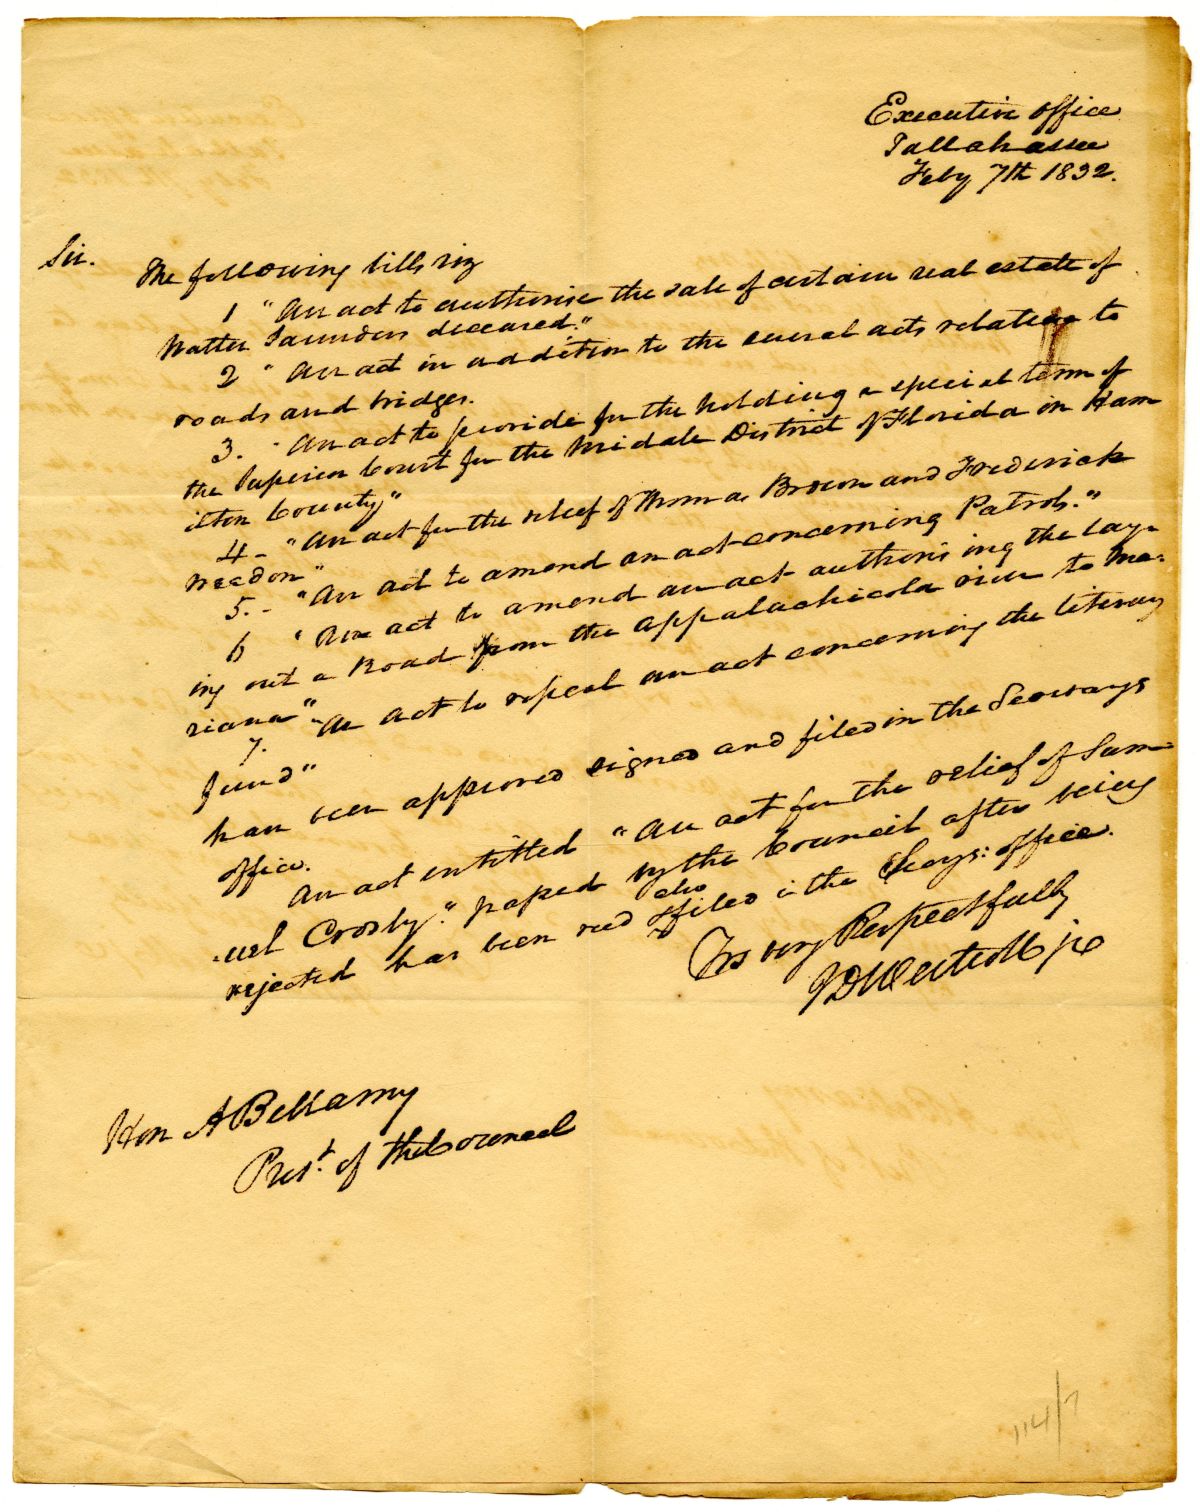 Executive office
Tallahassee
Feby 7th 1832.
Sir.
The following bills viz
1 "An act to authorise the sale of certain real estate of
Walter Saunders deceased."
2 "An act in addition to the several acts relative to
roads and bridges.
3. "An act to provide for the holding a special term of
the Superior Court for the Middle District of Florida in Ham
ilton County"
4 - "An act for the relief of Thomas Brown and Frederick
Weedon"
5. - "An act to amend an act concerning Patrols."
6 "An act to amend an act authorising the lay-
ing out a Road from the Appalachicola river to Ma-
riana"
7. "An act to repeal an act concerning the literary
fund"
have been approved signed and filed in the Secretarys
office.
An act entitled "An act for the relief of Sam-
-uel Crosby." passed by the Council after being
rejected has been recd & filed in the Secys: office.
also
Yrs very Respectfully
J D Westcott jr
Hon A Bellamy
Prest. of the Council
114/7